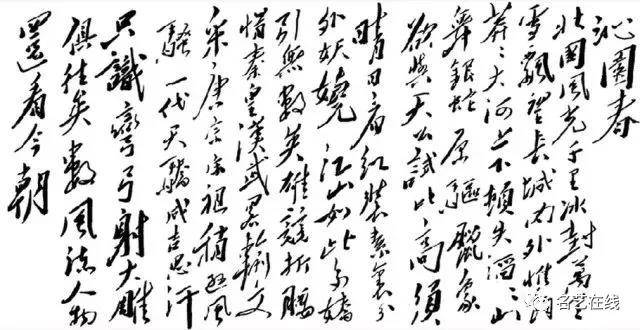 沁園春
北國風光千里冰封萬里
雪飄望長城內外惟餘
莽莽大河上下頓失滔滔山
舞銀蛇原驅臘象
欲與天公試比高須
晴日看紅裝素裹分
外妖嬈江山如此多嬌
引無數英雄競折腰
惜秦皇漢武略輸文
采唐宗宋祖稍遜風
騷一代天驕成吉思汗
只識彎弓射大雕
俱往矣數風流人物
還看今朝
名艺在线